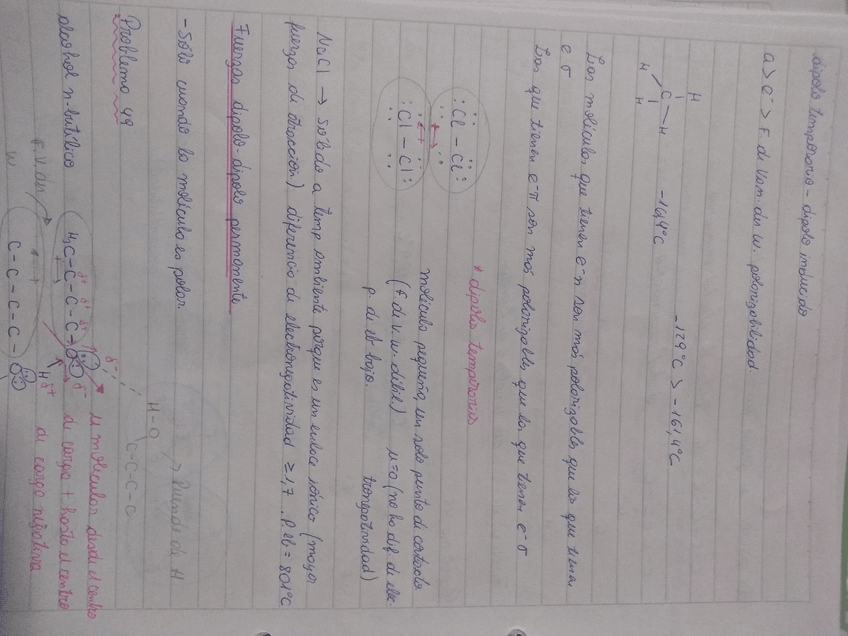 dipolo temporario - dipolo inducido
a > e⁻ > F. de Van. der W. polarizabilidad.
H
H C H
H
-161,4°C
-129°C > -161,4°C
Las moléculas que tienen e⁻n son más polarizables que las que tienen
e⁻σ
Las que tienen e⁻π son más polarizables que las que tienen e⁻σ
* dipolos temporarios
:Cl - Cl:
:Cl - Cl:
molécula pequeña, un solo punto de contacto
(f. de v. w. débil) μ=0 (no ha dif. de elec-
p. de eb bajo. tronegatividad)
NaCl → sólido a temp ambiente porque es un enlace iónico (mayor
fuerzas de atracción) diferencia de electronegatividad ≥ 1,7 . P. eb = 801°C
Fuerzas dipolo-dipolo permanente
- Solo cuando la molécula es polar.
Problema 49
alcohol n-butílico
H₃C - C - C - C - O
δ⁺ δ⁺ δ⁺ δ⁻
H δ⁺
δ⁻
H - O
C - C - C - C
Puente de H
μ molecular desde el centro
de carga + hasta el centro
de carga negativa
F. V. der
W
C - C - C - C - O